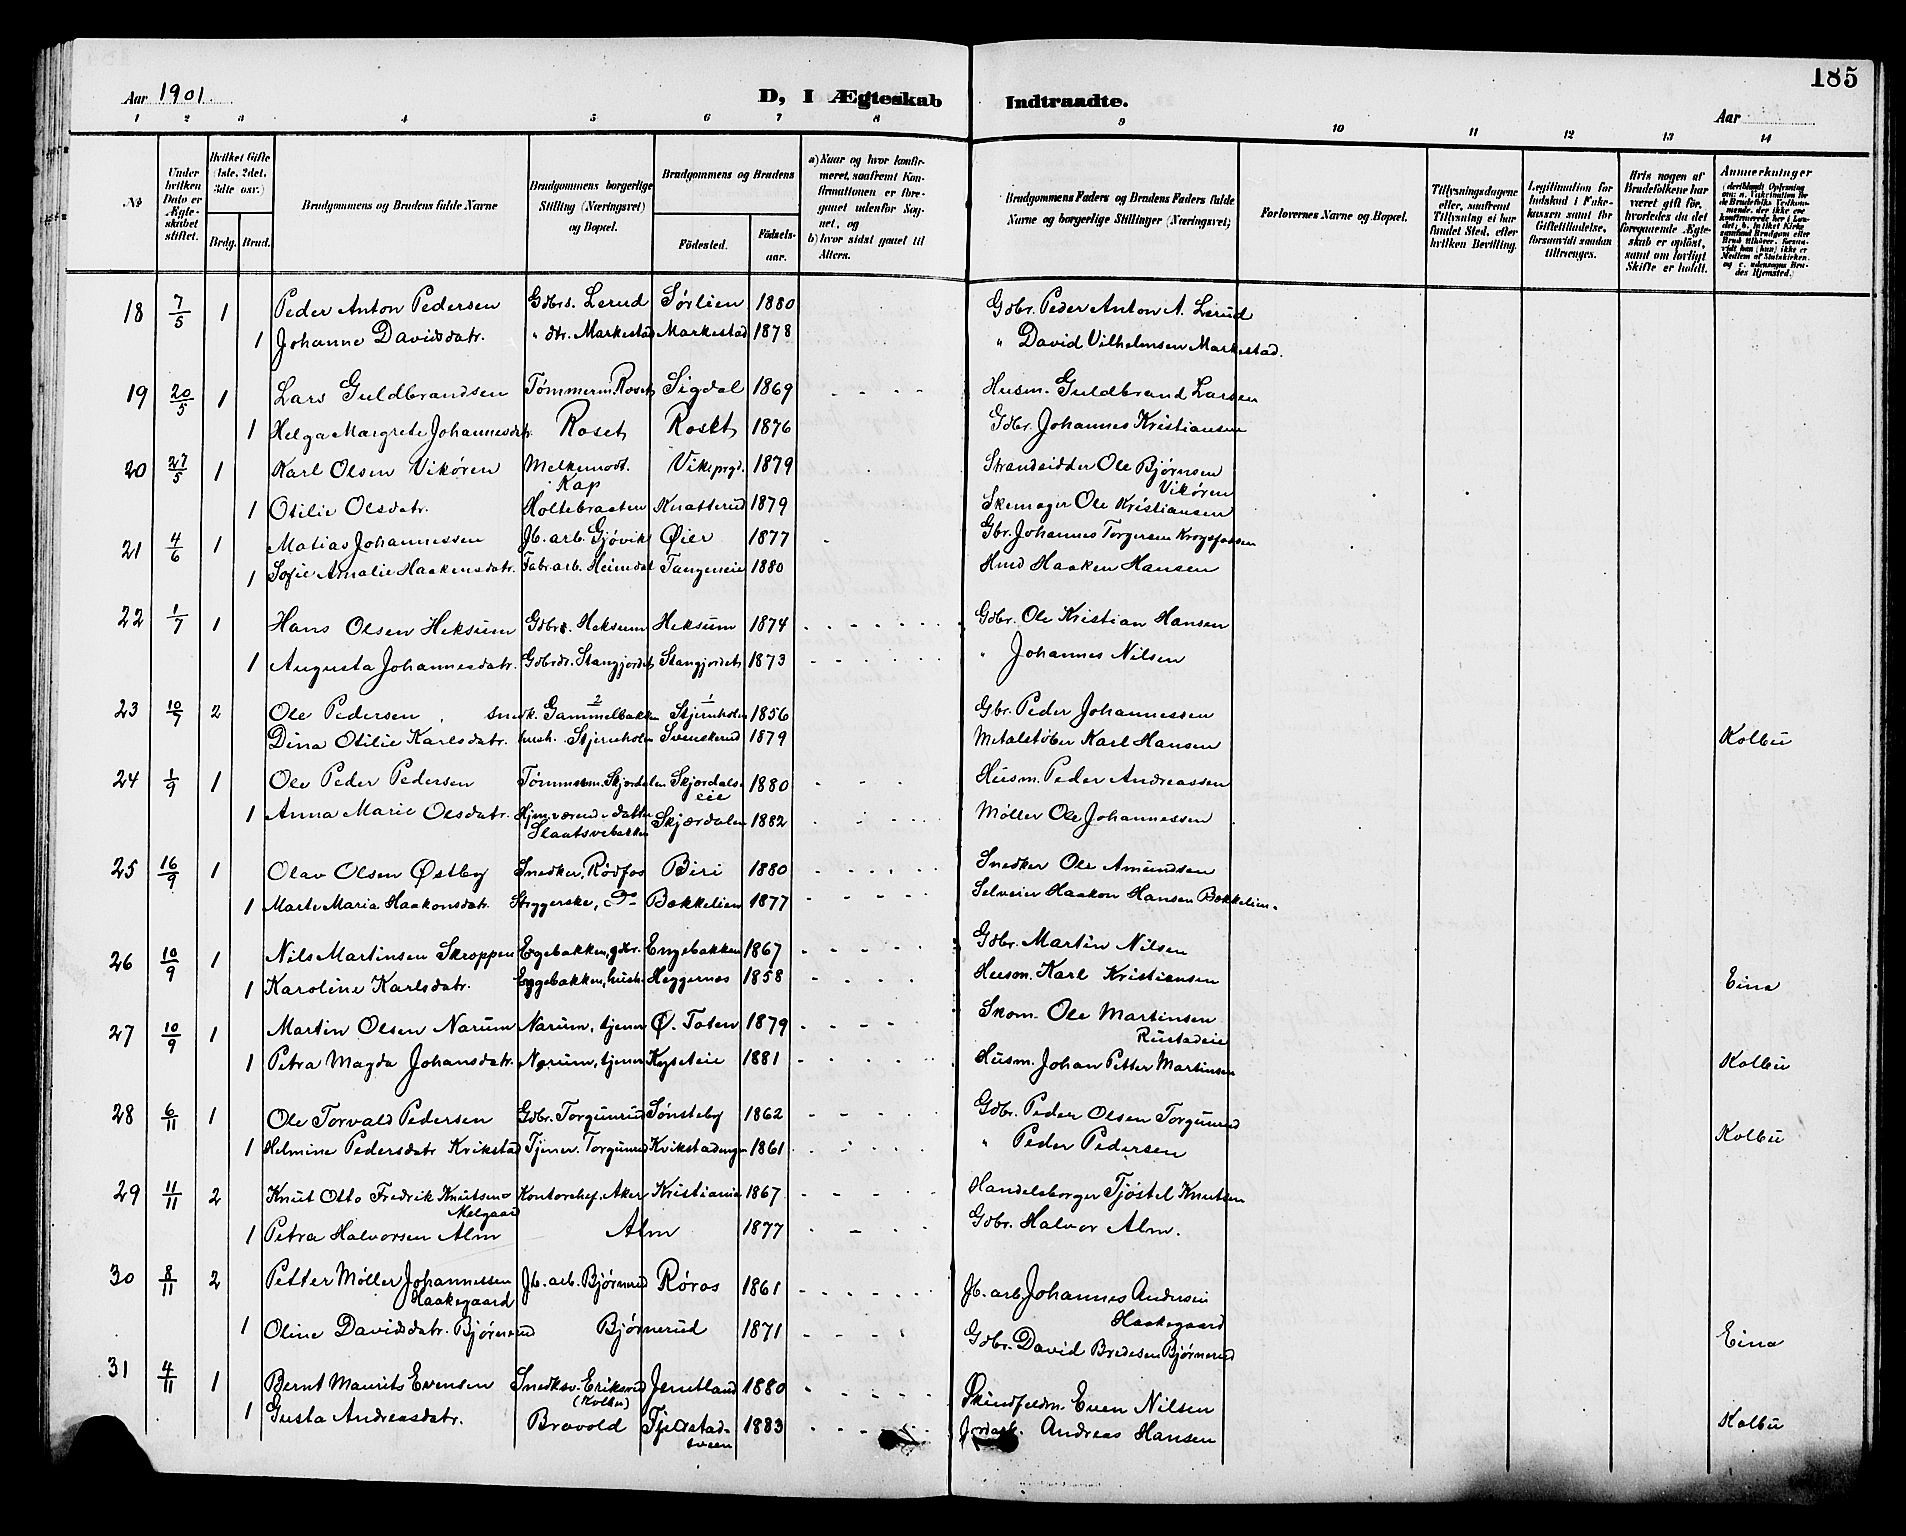 185
Aar 1901. D, I Ægteskab Indtraadte. Aar
1 2 3 4 5 6 7 8 9 10 11 12 13 14
№
Under hvilken Dato er Ægteskabet stiftet.
Hvilket Gifte (1ste, 2det, 3die osv.)
Brdg. Brud.
Brudgommens og Brudens fulde Navne
Brudgommens borgerlige Stilling (Næringsvei) og Bopæl.
Brudgommens og Brudens
Fødested. Fødselsaar.
a) Naar og hvor konfirmeret, saafremt Konfirmationen er foregaaet udenfor Sognet, og
b) hvor sidst gaaet til Alters.
Brudgommens Faders og Brudens Faders fulde Navne og borgerlige Stillinger (Næringsvei)
Forlovernes Navne og Bopæl.
Tillysningsdagene eller, saafremt Tillysning ei har fundet Sted, efter hvilken Bevilling.
Legitimation for Indskud i Enkekassen samt for Giftetilladelse, forsaavidt saadan tiltrænges.
Hvis nogen af Brudefolkene har været gift før, hvorledes da det foregaaende Ægteskab er opløst, samt om lovligt Skifte er holdt.
Anmerkninger
18 7/5 1 Peder Anton Pedersen Gdbrs. Lerud Sørlien 1880 Gdbr. Peder Anton A. Lerud
1 Johanne Davidsdatr. " dtr. Markestad Markestad 1878 " David Vilhelmsen Markestad.
19 20/5 1 Lars Guldbrandsen Tømmerm. Roset Sigdal 1869 Husm. Guldbrand Larsen
1 Helga Margrete Johannesdatr. Roset Roset 1876 Gdbr. Johannes Kristiansen
20 27/5 1 Karl Olsen Vikøren Melkemodt. Kap Vikeprgd. 1879 Strandsidder Ole Bjørnsen Vikøren
1 Otilie Olsdatr. Holtebraaten Knatterud 1879 Skomager Ole Kristiansen
21 4/6 1 Matias Johannessen Jb. arb. Gjøvik Øier 1877 Gbr. Johannes Torgersen Krogsfossen
1 Sofie Amalie Haakensdatr. Fabrarb. Heimdal Tangeneie 1880 Hmd Haaken Hansen
22 1/7 1 Hans Olsen Heksum Gdbrs. Heksum Heksum 1874 Gdbr. Ole Kristian Hansen
1 Augusta Johannesdatr. Gdbrdr. Stangjordet Stangjordet 1873 " Johannes Nilsen
23 10/7 2 Ole Pedersen Snedk. Gammelbakken Stjernholen 1856 Gbr. Peder Johannessen
Dina Otilie Karlsdatr. hush. Stjernholen Svenskerud 1879 Metalstøber Karl Hansen Kolbu
24 1/9 1 Ole Peder Pedersen Tømmerm. Skjordalen Skjordalseie 1880 Husm. Peder Andreassen
1 Anna Marie Olsdatr. Hjemværende datter Slaatsvebakken Skjærdalen 1882 Møller Ole Johannessen
25 16/9 1 Olav Olsen Østby Snedker, Rødfos Biri 1880 Snedker Ole Amundsen
1 Marte Maria Haakonsdatr. Strygerske, do Bakkelien 1877 Selveier Haakon Hansen Bakkelien.
26 10/9 1 Nils Martinsen Skroppen Eggebakken, gdbr. Engebakken 1867 Gdbr. Martin Nilsen
1 Karoline Karlsdatr. Eggebakken, hush. Heggernes 1858 Husm. Karl Kristiansen Eina
27 10/9 1 Martin Olsen Narum Narum, tjener Ø. Toten 1879 Skom. Ole Martinsen Rustadeie
1 Petra Magda Johansdatr. Narum, tjener Kyseteie 1881 Husm. Johan Petter Martinsen Kolbu
28 6/11 1 Ole Torvald Pedersen Gdbr. Torgunrud Sønsteby 1862 Gdbr. Peder Olsen Torgunrud
1 Helmine Pedersdatr Krikstad Tjener. Torgunrud 1861 " Peder Pedersen Kolbu
29 11/11 2 Knut Otto Fredrik Knutsen Melgaard Kontorchef. Aker Kristiania 1867 Handelsborger Tjøstel Knutsen
1 Petra Halvorsen Alm Alm 1877 Gdbr. Halvor Alm.
30 8/11 2 Petter Møller Johannessen Haakegaard Jb. arb. Bjørnerud Røros 1861 Jb. arb. Johannes Andersen Haakegaard
1 Oline Davidsdatr. Bjørnerud Bjørnerud 1871 Gdbr. David Bredesen Bjørnerud Eina
31 4/11 1 Bernt Maurits Evensen Snedksv. Eriksrud (Kolbu) Jemtland 1880 Skindfeldm. Even Nilsen
1 Gusta Andreasdatr. Bravold Fjeldstadsveen 1883 Jordarb. Andreas Hansen Kolbu